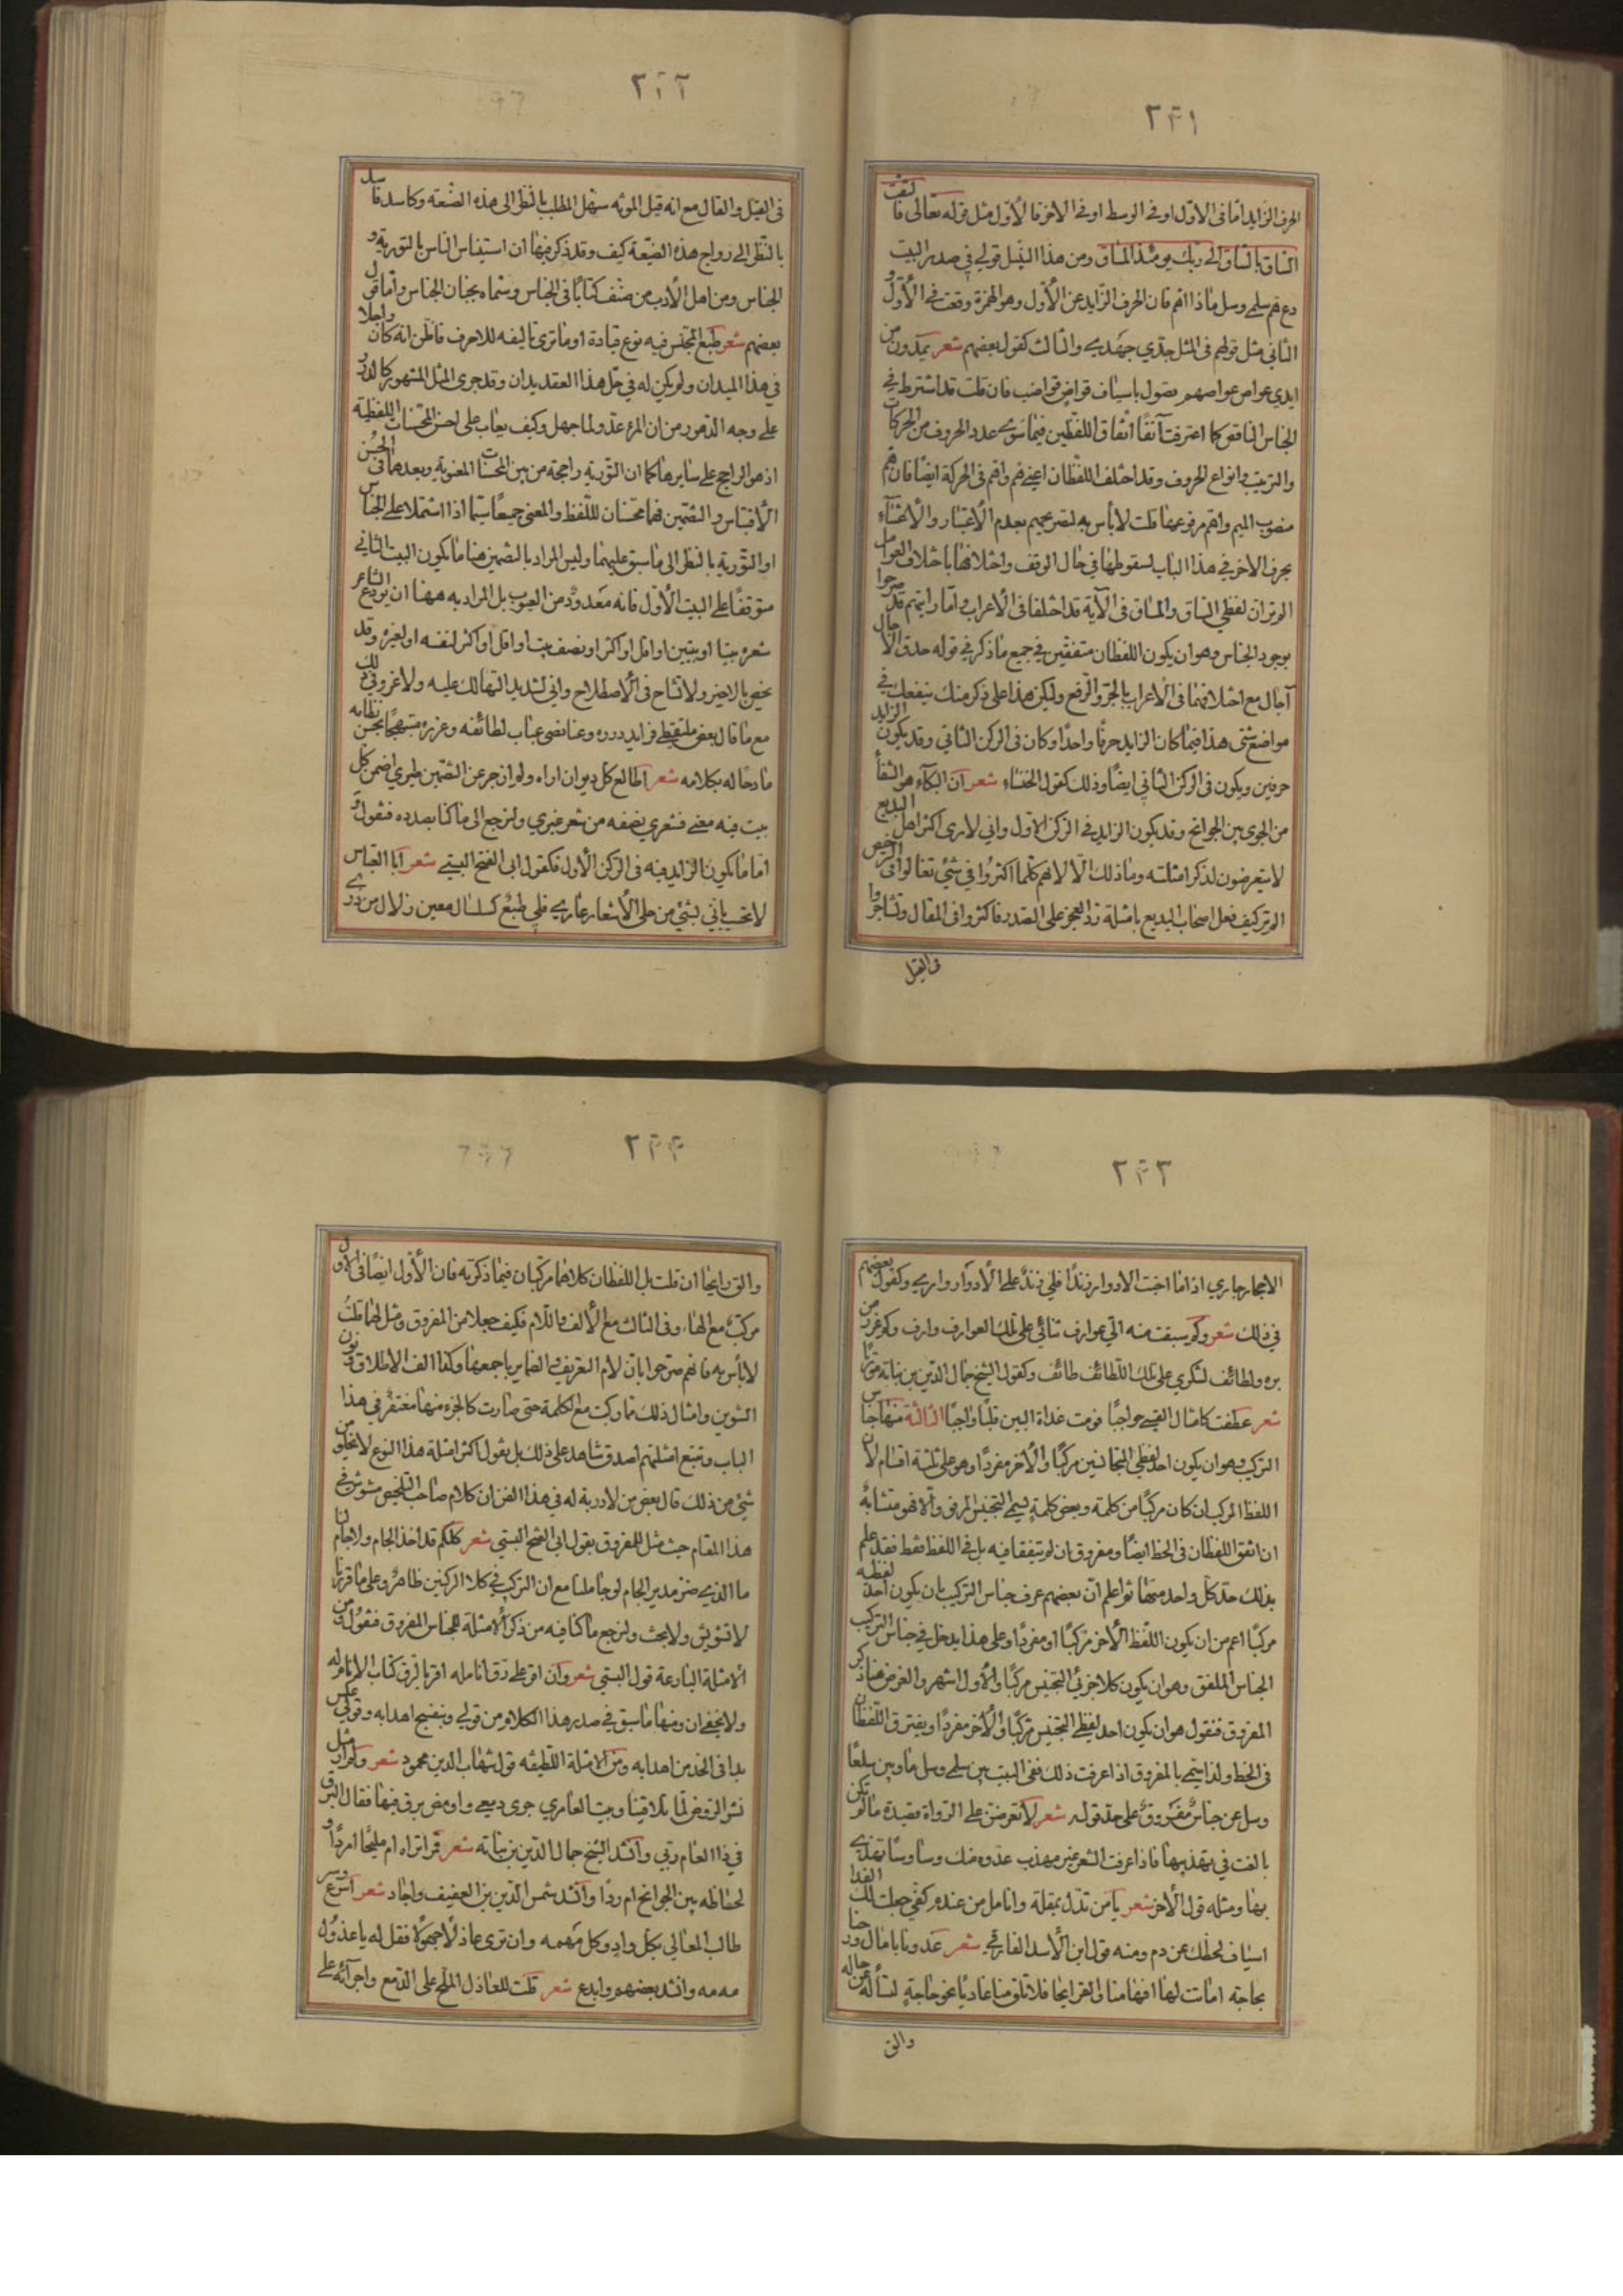 ٢٤١
الحرف الزايد اما فى الاول او فى الوسط او فى الاخر فالاول مثل قوله تعالى والتفت
الساق بالساق الى ربك يومئذ المساق ومن هذا القبيل قولي في صدر البيت
دع قم سلمى وسل ماذا اقم فان الحرف الزايد عن الأول وهو الهمزة وقعت في الأول و
الثانى مثل قولهم فى المثل جدّي جهدي والثالث كقول بعضهم شعر يمدون من
ايدي عواص عواصم تصول باسياف قواض قواضب فان قلت قد اشترط في
الجناس الناقص كما اعترفت آنفًا اتفاق اللفظين فيما سوى عدد الحروف من الحركات
والترتيب وانواع الحروف وقد اختلف اللفظان اعني قم واقم فى الحركة ايضا فان قم
منصوب الميم واقم مرفوعها قلت لا بأس به لتصريحهم بعدم الأعتبار والأعتناء
بحرف الاخر في هذا الباب لسقوطها في حال الوقف واختلافها باختلاف العوامل
الم تر ان لفظي الساق والمساق فى الآية قد اختلفا فى الأعراب واما رايتهم قد صرحوا
بوجود الجناس وهو ان يكون اللفظان متفقين في جميع ما ذكر في قوله حدق الآجال
آجال مع اختلافهما فى الأعراب بالجر والرفع وليكن هذا على ذكر منك ينفعك في
مواضع شتى هذا فيما كان الزايد حرفًا واحدًا وكان فى الركن الثاني وقد يكون الزايد
حرفين ويكون فى الركن الثاني ايضًا وذلك كقول الخنساء شعر ان البكاء هو الشفا
من الجوى بين الجوانح وقد يكون الزايد في الركن الاول واني لارى اكثر اهل البديع
لا يتعرضون لذكر امثلته وما ذلك الا لانهم كلما اكثروا في شئ تغالوا فى الترخيص
الم تر كيف فعل اصحاب البديع بامثلة رد العجز على الصدر فاكثروا فى المقال وتشاجروا
فى القيل
٢٤٢
فى القيل والقال مع انه قيل المؤنه سهل المطلب بالنظر الى هذه الصنعه وكاسد فاسد
بالنظر الى رواج هذه الصنعة كيف وقد ذكر فيها ان استيناس الناس بالتورية و
الجناس ومن اهل الأدب من صنف كتابًا فى الجناس وسماه بجنان الجناس واما قول
بعضهم شعر طبع المجنس فيه نوع قيادة اوما ترى تاليفه للاحرف فاظن انه كان راجلا
في هذا الميدان ولم يكن له في حل هذا العقد يدان وقد جرى المثل المشهور كالدرر
على وجه الدهور من ان المرء عدو لما جهل وكيف يعاب على احسن المحسنات اللفظية
اذ هو الراجح على سايرها كما ان التورية راجحة من بين المحسنات المعنوية وبعدهما فى الحسن
الأقتباس والتضمين فهما محسنان للفظ والمعنى جميعًا سيما اذا اشتملا على الجناس
او التورية بالنظر الى ما سبق عليهما وليس المراد بالتضمين هنا ما يكون البيت الثاني
متوقفًا على البيت الأول فانه معدود من العيوب بل المراد به ههنا ان يودع الشاعر
شعره بيتا او بيتين او اقل او اكثر او نصف بيت او اقل او اكثر لنفسه او لغيره وقد
يخص بالاخير ولا تشاح فى الأصطلاح واني لشديد التهالك عليه ولا غرو فى ذلك
مع ما قال بعض ملتقطي فرايد درره وغائضي عباب لطائفه وغرره متبهجًا بحسن نظامه
مادحًا له بكلامه شعر اطالع كل ديوان اراه ولم ازجر عن التضمين طيري اضمن كل
بيت فيه معنى فشعري نصفه من شعر غيري ولنرجع الى ما كنا بصدده فنقول و
اما ما يكون الزايد فيه فى الركن الأول فكقول ابى الفتح البستي شعر ابا العباس
لا تحسب باني بشئ من حلى الأشعار عاري فلي طبع كسلسال معين زلال من ذرى
٢٤٣
الاحجار جاري اذا ما اخبت الادوار زندًا فلي زند على الأدوار واري وكقول بعضهم
في ذلك شعر وكم سبقت منه الي عوارف ثنائي على تلك العوارف وارف وكم غرر من
بره ولطائف لشكري على تلك اللطائف طائف وكقول الشيخ جمال الدين بن نباته موريًا
شعر عطفت كامثال القسي حواجبًا فرمت غداة البين قلبًا واجبًا الثالثة منها جناس
التركيب وهو ان يكون احد لفظي المتجانسين مركبًا والأخر مفردًا وهو على ثلثة اقسام لأن
اللفظ المركب ان كان مركبًا من كلمة وبعض كلمة يسمى التجنيس المرفو والا فهو متشابه
ان اتفق اللفظان فى الخط ايضًا ومفروق ان لم يتفقا فيه بل فى اللفظ فقط فقد علم
بذلك حد كل واحد منها ثم اعلم ان بعضهم عرف جناس التركيب بان يكون احد لفظيه
مركبًا اعم من ان يكون اللفظ الأخر مركبًا او مفردًا وعلى هذا يدخل في جناس التركيب
الجناس الملفق وهو ان يكون كلا جزئي التجنيس مركبًا والأول اشهر والغرض هنا ذكر
المفروق فنقول هو ان يكون احد لفظي التجنيس مركبًا والأخر مفردًا ويفترق اللفظان
فى الخط ولذا يسمى بالمفروق اذا عرفت ذلك ففى البيت بين سلمى وسل ما وبين سلعا
وسل عن جناس مفروق على حد قوله شعر لا تعرضن على الرواة قصيدة ما لم تكن
بالغت في تهذيبها فاذا عرضت الشعر غير مهذب عدوه منك وساوسًا تهذي
بها ومثله قول الأخر شعر يا من تدل بمقلة وانامل من عندم كفي جعلت لك الفدا
اسياف لحظك عن دم ومنه قول ابن الأسد الفارقي شعر غدونا بامال ورحنا
بحاجة اماتت لها افهامنا والقرايحا فلا تلق منا غاديًا نحو حاجةٍ لتسأله عن حاله
والق
٢٤٤
والق رايحا ان قلت بل اللفظان كلاهما مركبان فيما ذكرته فان الأول ايضًا فى الأول
مركب مع الهاء وفى الثالث مع الألف واللام فكيف جعلا من المفروق ومثل لهما قلتُ
لا بأس به فانهم صرحوا بان لام التعريف والضماير باجمعها وكذا الف الاطلاق ونون
التنوين وامثال ذلك مما ركبت مع الكلمة حتى صارت كالجزء منها مغتفر في هذا
الباب وتتبع امثلتهم اصدق شاهد على ذلك بل يقول اكثر امثلة هذا النوع لا يخلو من
شئ من ذلك قال بعض من لا دربة له في هذا الفن ان كلام صاحب التلخيص مشوش في
هذا المقام حيث مثل للمفروق بقول ابى الفتح البستي شعر كلكم قد اخذ الجام ولا جام لنا
ما الذي ضر مدير الجام لو جاملنا مع ان التركيب في كلا الركنين ظاهر وعلى ما قررنا
لا تشويش ولا بحث ولنرجع ما كنا فيه من ذكر الأمثلة للجناس المفروق فنقول ومن
الأمثلة البارعة قول البستي شعر وان اقر على رق انامله اقر بالرق كتاب الانام له
ولا يخفى ان منها ما سبق في صدر هذا الكلام من قولي وبنفسج اهدابه وقولي عكس
بدا فى الخد من اهدابه ومن الامثلة اللطيفه قول شهاب الدين محمود شعر ولم ار مثل
نشر الروض لما تلاقينا وبيت العامري جرى دمعي واومض برق فيها فقال البرق
في ذا العام ريّ وانشد الشيخ جمال الدين بن نباته شعر قمرا تراه ام مليحًا امردًا و
لحاظه بين الجوانح ام ردا وانشد شمس الدين بن العفيف واجاد شعر اسرع وسر
طالب المعالي بكل وادٍ وكل مهمه وان ترى عاذلًا جهولًا فقل له يا عذول
مه مه وانشد بعضهم وابدع شعر قلت للعاذل الملح على الدمع واجرائه على